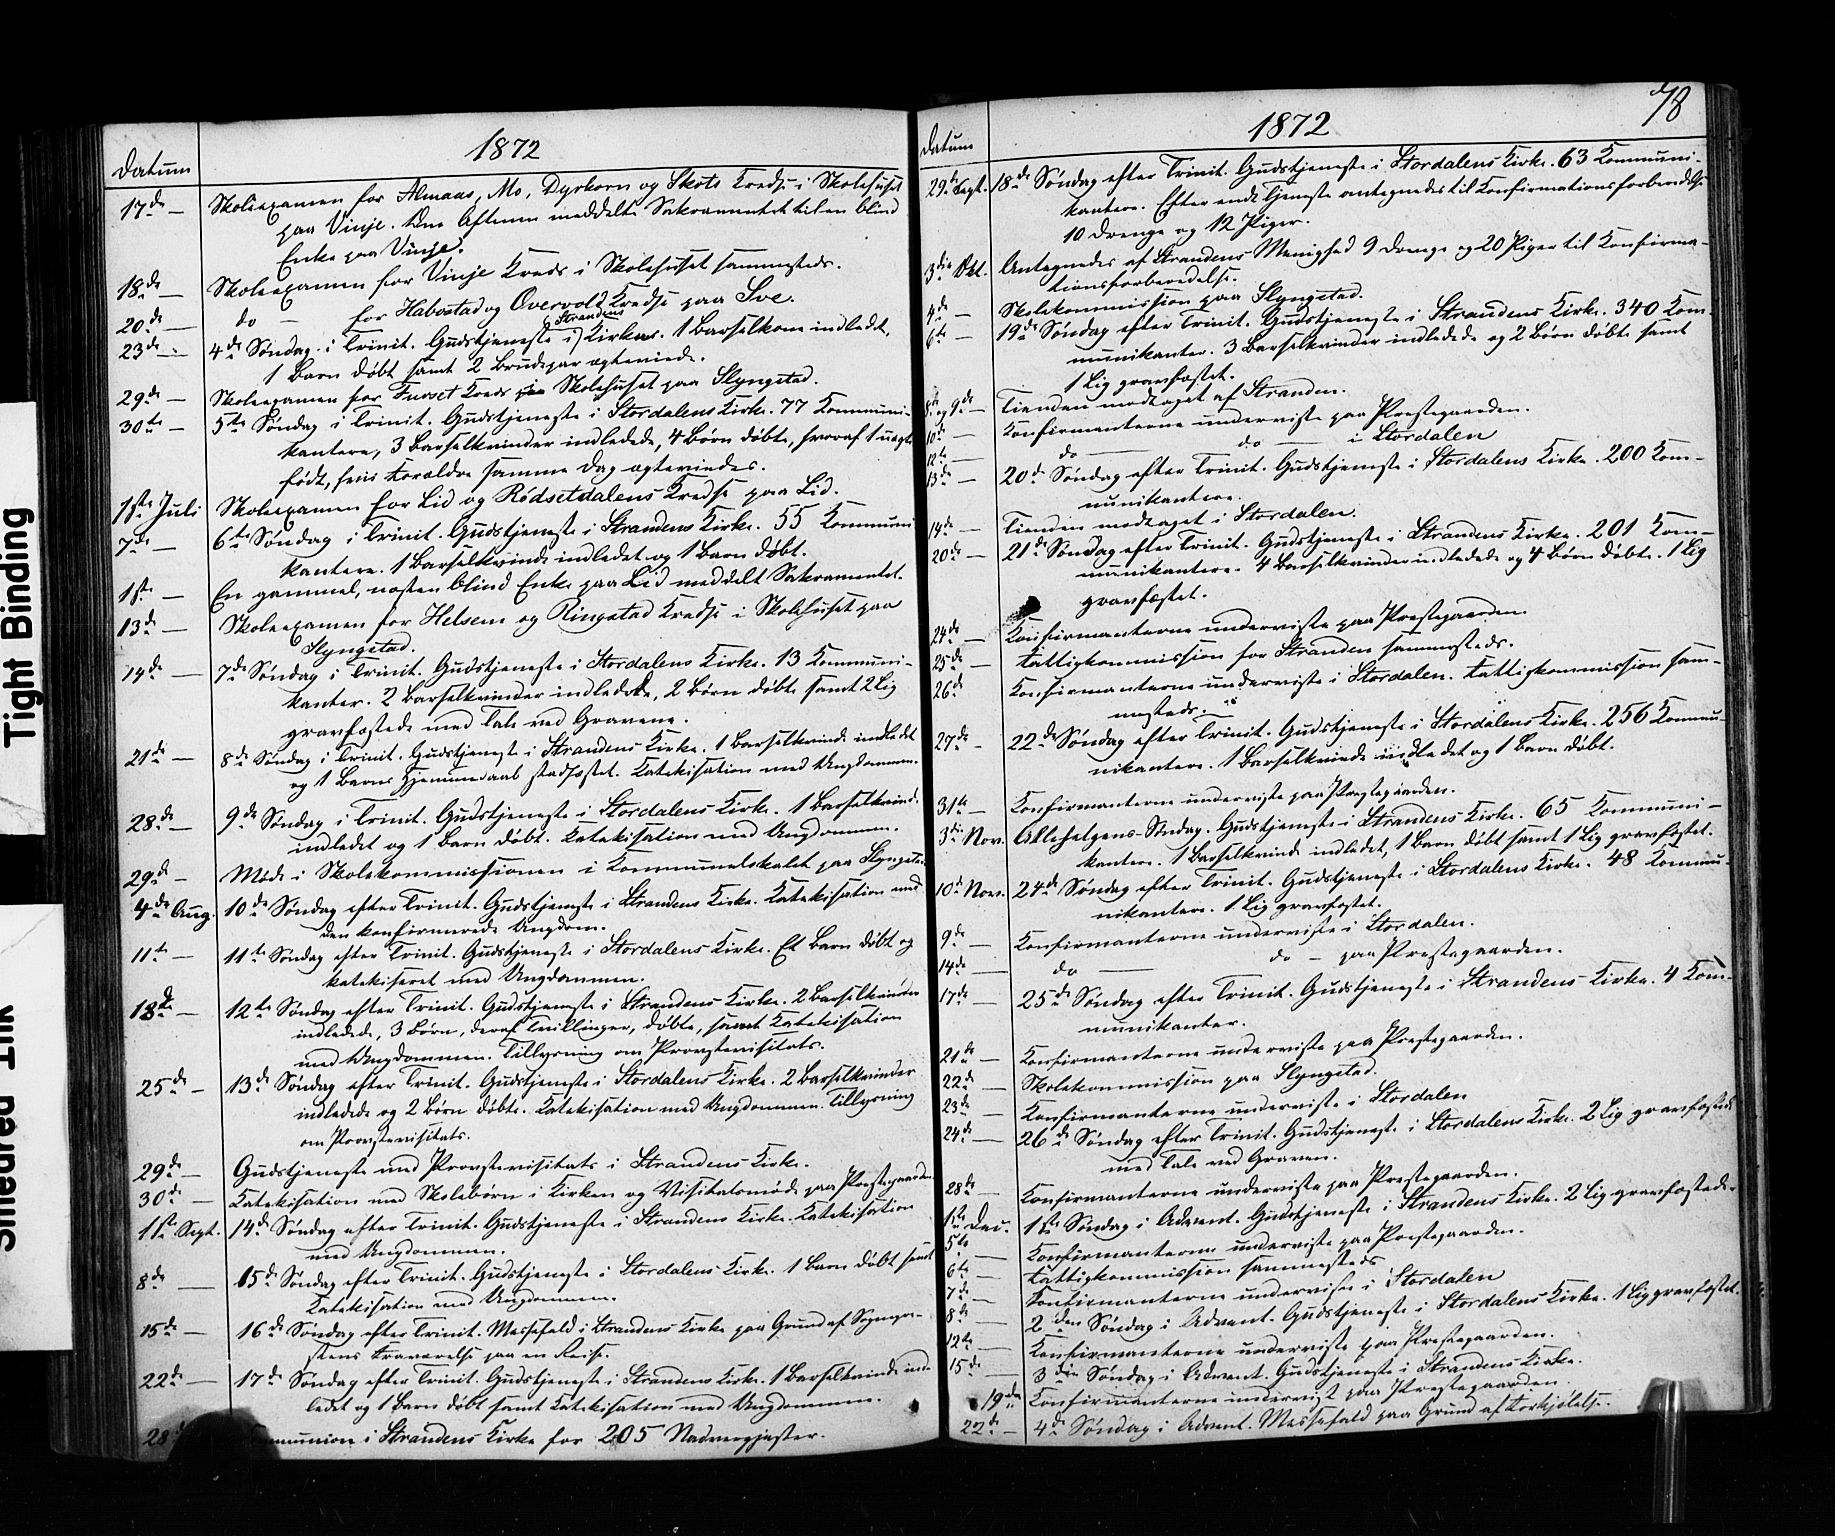 Tight Binding
Smeared Ink
1872
Datum
17de — Skoleexamen for Almaas, Mo, Dyrkorn og Skots Kredse i Skolehuset
paa Vinje. Den Aftenen meddelte Sakramentet til en blind
Enke paa Vinje.
18de — Skoleexamen for Vinje Kreds i Skolehuset sammesteds.
20de — do — for Habostad og Overvold Kredse paa Sve.
Strandens
23de — 4de Søndag i Trinit. Gudstjeneste i Kirke. 1 Barselkone indledt,
1 Barn døbt samt 2 Brudepar ægteviede.
29de — Skoleexamen for Kreds Skolehuset paa Slyngstad.
30te — 5te Søndag i Trinit. Gudstjeneste i Stordalens Kirke. 77 Kommuni-
kantere, 3 Barselkvinder indledede, 4 Børn døbte, hvoraf 1 uægte
født, hvis Forældre samme Dag ægteviedes.
1ste Juli Skoleexamen for Lid og Rødsetdalens Kredse paa Lid.
7de — 6te Søndag i Trinit. Gudstjeneste i Strandens Kirke. 55 Kommuni
kantere. 1 Barselkvinde indledet og 1 Barn døbt.
1ste — En gammel, næsten blind Enke paa Lid meddelt Sakramentet.
13de — Skoleexamen for Helsem og Ringstad Kredse i Skolehuset paa
Slyngstad.
14de — 7de Søndag i Trinit. Gudstjeneste i Stordalens Kirke. 13 Kommuni-
kanter. 2 Barselkvinder indledede, 2 Børn døbte samt 2 Lig
gravfæstede med Tale ved Gravene.
21de — 8de Søndag i Trinit. Gudstjeneste i Strandens Kirke. 1 Barselkvinde indledet
og 1 Barns Hjemmedaab stadfæstet. Katekisation med Ungdommen.
28de — 9de Søndag i Trinit. Gudstjeneste i Stordalens Kirke. 1 Barselkvinde
indledet og 1 Barn døbt. Katekisation med Ungdommen.
29de — Møde i Skolekommissionen i Kommunelokalet paa Slyngstad.
4de Aug. 10de Søndag efter Trinit. Gudstjeneste i Strandens Kirke. Katekisation med
den konfirmerede Ungdom.
11te — 11te Søndag efter Trinit. Gudstjeneste i Stordalens Kirke. Et Barn døbt og
katekiseret med Ungdommen.
18de — 12te Søndag efter Trinit. Gudstjeneste i Strandens Kirke. 2 Barselkvinder
indledede, 3 Børn, deraf Tvillinger, døbte, samt Katekisation
med Ungdommen. Tillysning om Provstevisitats.
25de — 13de Søndag efter Trinit. Gudstjeneste i Stordalens Kirke. 2 Barselkvinder
indledede og 2 Børn døbte. Katekisation med Ungdommen. Tillysning
om Provstevisitats.
29de — Gudstjeneste med Provstevisitats i Strandens Kirke.
30de — Katekisation med Skolebørn i Kirken og Visitatsmøde paa Prestegaarden.
1ste Sept. 14de Søndag efter Trinit. Gudstjeneste i Strandens Kirke. Katekisation
med Ungdommen.
8de — 15de Søndag efter Trinit. Gudstjeneste i Stordalens Kirke. 1 Barn døbt samt
Katekisation med Ungdommen.
15de — 16de Søndag efter Trinit. Messefald i Strandens Kirke paa Grund af Sognepre-
stens Fraværelse paa en Reise.
22de — 17de Søndag efter Trinit. Gudstjeneste i Strandens Kirke. 1 Barselkvinde ind-
ledet og 1 Barn døbt samt Katekisation med Ungdommen.
28 munion i Strandens Kirke for 205 Nadvergjæster.
78
1872
Datum
29de Sept. 18de Søndag efter Trinit. Gudstjeneste i Stordalens Kirke. 63 Kommuni-
kantere. Efter endt Tjeneste antegnedes til Konfirmationsforberedelse
10 Drenge og 12 Piger.
3die Okt. Antegnedes af Strandens Menighed 9 Drenge og 20 Piger til Konfirma-
tionsforberedelse.
4de — Skolekommission paa Slyngstad.
6te — 19de Søndag efter Trinit. Gudstjeneste i Strandens Kirke. 340 Kom-
munikanter. 3 Barselkvinder indledede og 2 Børn døbte samt
1 Lig gravfæstet.
8de og 9de — Tienden modtaget af Stranden.
10de — Konfirmanterne underviste paa Prestegaarden.
12te — do — do — i Stordalen
13de — 20de Søndag efter Trinit. Gudstjeneste i Stordalens Kirke. 200 Kom-
munikantere.
14de — Tienden modtaget i Stordalen.
20de — 21de Søndag efter Trinit. Gudstjeneste i Strandens Kirke. 201 Kom-
munikantere. 4 Barselkvinder indledede og 4 Børn døbte. 1 Lig
gravfæstet.
24de — Konfirmanterne underviste paa Prestegaarden.
25de — Fattigkommission for Stranden sammesteds.
26de Konfirmanterne underviste i Stordalen. Fattigkommission sam-
mesteds.
27de — 22de Søndag efter Trinit. Gudstjeneste i Stordalens Kirke. 256 Kommu-
nikantere. 1 Barselkvinde indledet og 1 Barn døbt.
31te — Konfirmanterne underviste paa Prestegaarden.
3die Nov. Allehelgens-Søndag. Gudstjeneste i Strandens Kirke. 65 Kommuni-
kantere. 1 Barselkvinde indledet, 1 Barn døbt samt 1 Lig gravfæstet.
10de Nov. 24de Søndag efter Trinit. Gudstjeneste i Stordalens Kirke. 48 Kommu-
nikantere. 1 Lig gravfæstet.
9de — Konfirmanterne underviste i Stordalen.
14de — do — do — paa Prestegaarden.
17de — 25de Søndag efter Trinit. Gudstjeneste i Strandens Kirke. 4 Kom-
munikanter.
21de — Konfirmanterne underviste paa Prestegaarden.
22de — Skolekommission paa Slyngstad.
23de — Konfirmanterne underviste i Stordalen
24de — 26de Søndag efter Trinit. Gudstjeneste i Stordalens Kirke. 2 Lig gravfæstede
med Tale ved Graven.
28de — Konfirmanterne underviste paa Prestegaarden.
1ste Dec. 1ste Søndag i Advent. Gudstjeneste i Strandens Kirke. 2 Lig gravfæstede.
5te — Konfirmanterne underviste paa Prestegaarden.
6te — Fattigkommission sammesteds
7de — Konfirmanterne underviste i Stordalen
8de — 2den Søndag i Advent. Gudstjeneste i Stordalens Kirke. 1 Lig gravfæstet.
12te — Konfirmanterne underviste paa Prestegaarden.
15de — 3die Søndag i Advent. Gudstjeneste i Strandens Kirke.
19de Konfirmanterne undervist paa Prestegaarden.
22de — 4de Søndag i Advent. Messefald paa Grund af Forkjølelse.